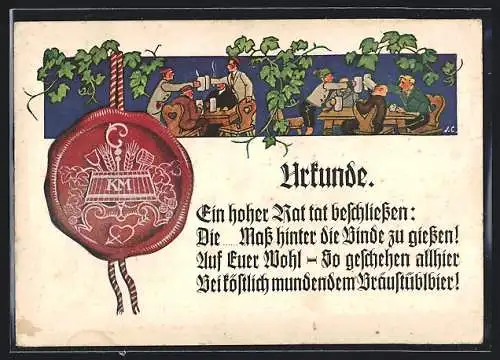 KM
Urkunde.
Ein hoher Rat tat beschließen:
Die ... Maß hinter die Binde zu gießen!
Auf Euer Wohl – So geschehen allhier
Bei köstlich mundendem Bräustüblbier!